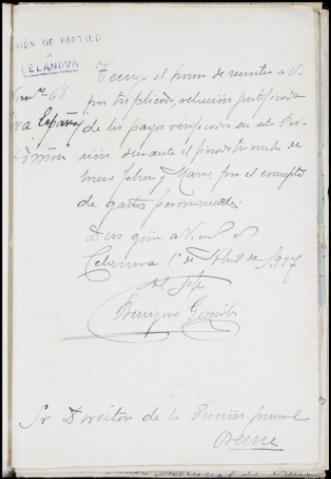 SIÓN DE PARTIDO
CELANOVA
Tengo el honor de remitir a V.
Num 68
por triplicado, relación justificada
España
de los pagos verificados en esta Pri-
sión durante el primer trimestre de
Enero Febrero y Marzo por el concepto
de gastos permanentes.
Dios guíe a V. m. a.
Celanova 1º de Abril de 1937
El Jefe
Benigno
Sr Director de la Prisión
Orense